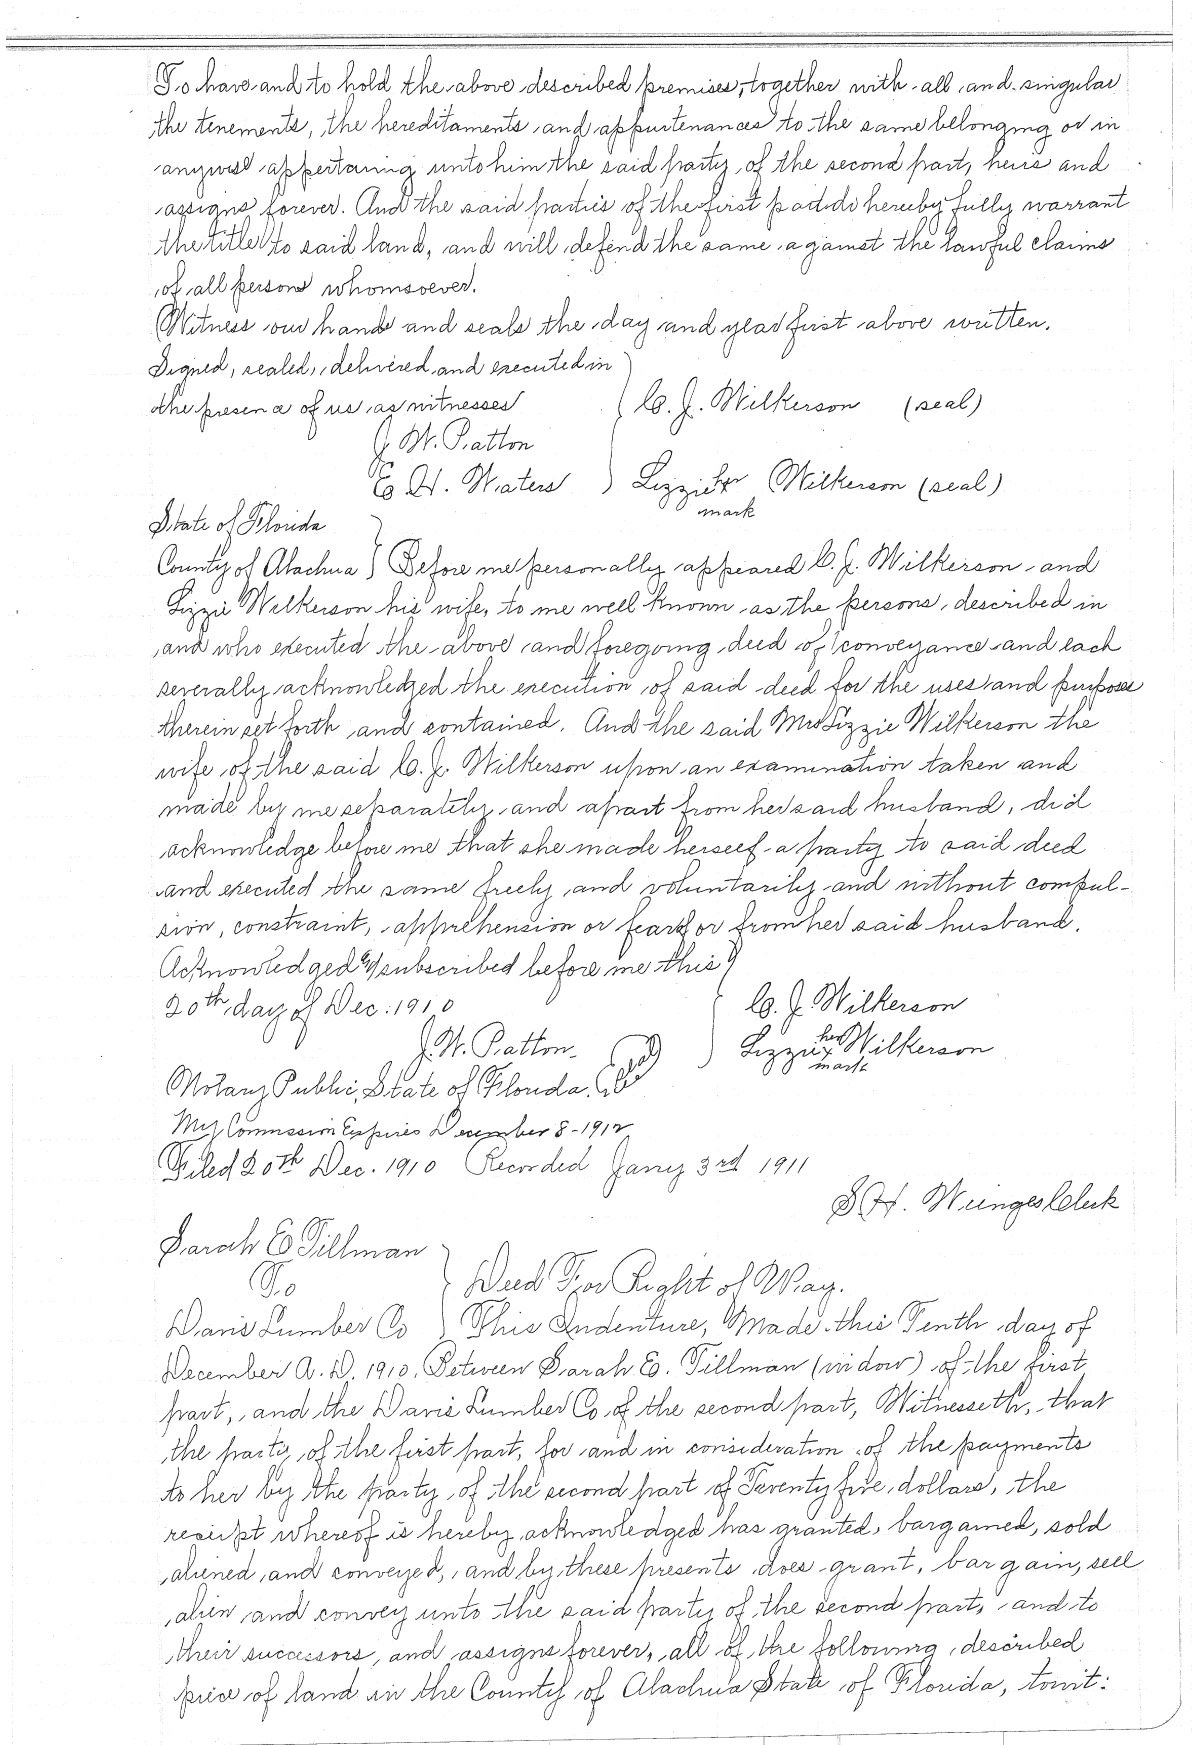 To have and to hold the above described premises, together with all and singular
the tenements, the hereditaments and appurtenances to the same belonging or in
anywise appertaining unto him the said party of the second part, heirs and
assigns forever. And the said parties of the first part do hereby fully warrant
the title to said land, and will defend the same against the lawful claims
of all persons whomsoever.
Witness our hands and seals the day and year first above written.
Signed, sealed, delivered and executed in
the presence of us as witnesses C. J. Wilkerson (seal)
J. W. Patton
E. H. Waters Lizzie her x Wilkerson (seal)
mark
State of Florida
County of Alachua } Before me personally appeared C. J. Wilkerson and
Lizzie Wilkerson his wife, to me well known as the persons, described in
and who executed the above and foregoing deed of conveyance and each
severally acknowledged the execution of said deed for the uses and purposes
therein set forth and contained. And the said Mrs Lizzie Wilkerson the
wife of the said C. J. Wilkerson upon an examination taken and
made by me separately and apart from her said husband, did
acknowledge before me that she made herself a party to said deed
and executed the same freely and voluntarily and without compul-
sion, constraint, apprehension or fear of or from her said husband.
Acknowledged & subscribed before me this
20th day of Dec. 1910 C. J. Wilkerson
J. W. Patton Lizzie her x Wilkerson
mark
Notary Public, State of Florida. (Seal)
My Commission Expires December 8-1912
Filed 20th Dec. 1910 Recorded Jany 3rd 1911
S. H. Wienges Clerk
Sarah E Tillman
To } Deed For Right of Way.
Davis Lumber Co } This Indenture, Made this Tenth day of
December A. D. 1910, Between Sarah E. Tillman (widow) of the first
part, and the Davis Lumber Co of the second part, Witnesseth, that
the party of the first part, for and in consideration of the payments
to her by the party of the second part of Twenty five dollars, the
receipt whereof is hereby acknowledged has granted, bargained, sold
aliened and conveyed, and by these presents does grant, bargain, sell
alien and convey unto the said party of the second part, and to
their successors, and assigns forever, all of the following described
piece of land in the County of Alachua State of Florida, towit: